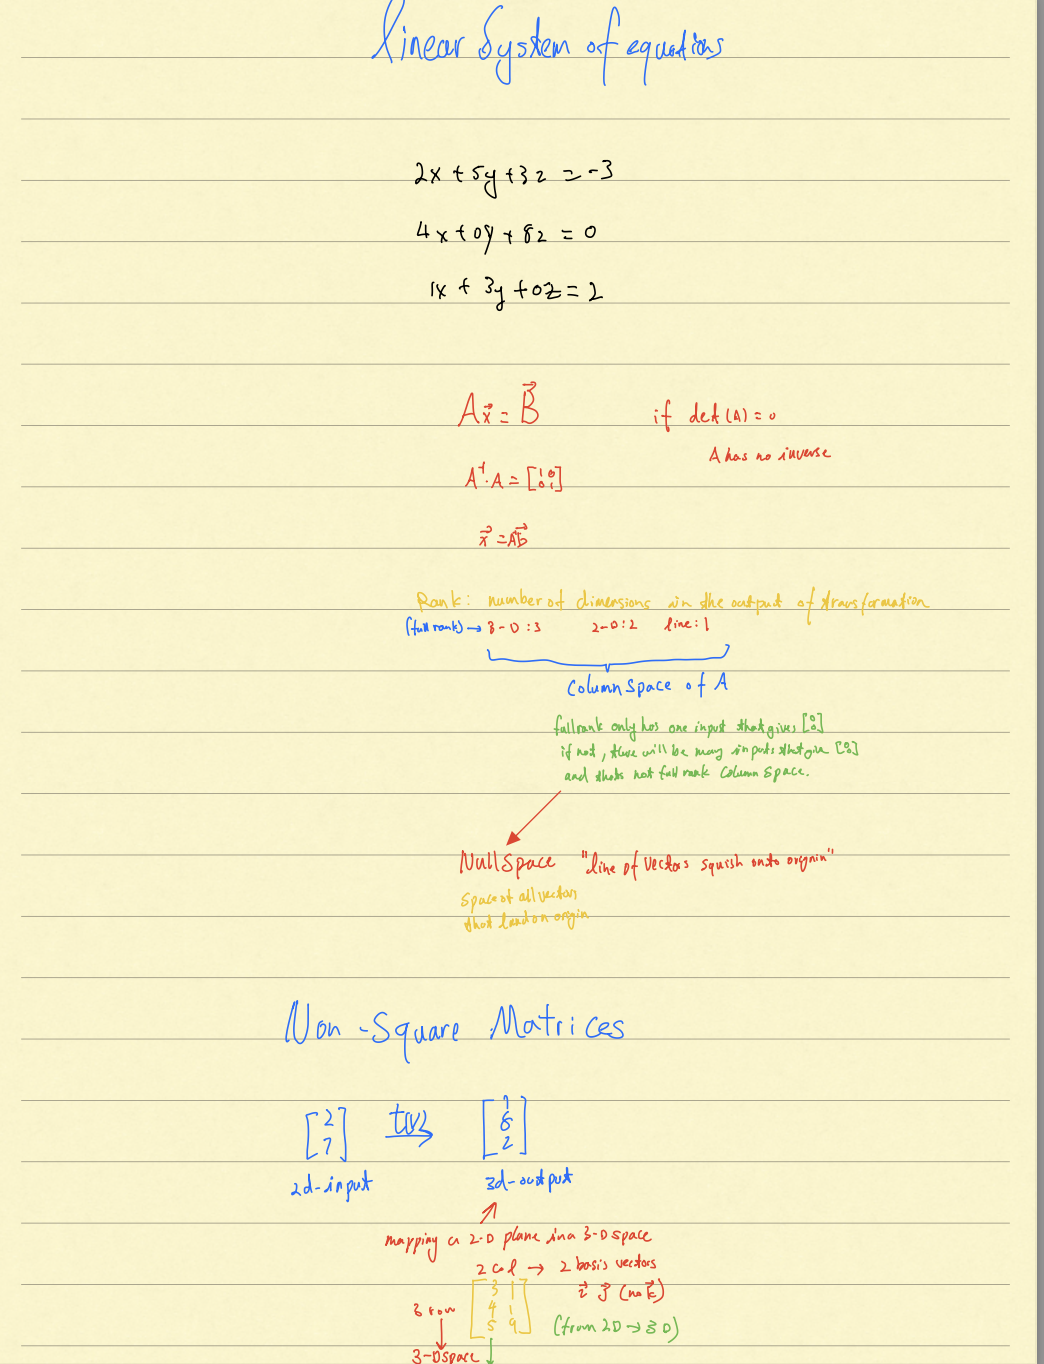 linear System of equations
2x + 5y + 3z = -3
4x + 0y + 8z = 0
1x + 3y + 0z = 2
Ax⃗ = B⃗ if det(A) = 0
A has no inverse
A⁻¹·A = [1 0
0 1]
x⃗ = Ab⃗
Rank: number of dimensions in the output of transformation
(full rank) → 3-D : 3 2-D : 2 line : 1
Column Space of A
full rank only has one input that gives [0 0]
if not, there will be many inputs that give [0 0]
and thats not full rank Column Space.
Null Space "line of vectors squish onto orgnin"
Space of all vectors
that land on origin
Non-Square Matrices
[2 7] t(v) [1 8 2]
2d-input 3d-output
mapping a 2-D plane in a 3-D space
2 col → 2 basis vectors
[3 1
4 1
5 9]
i⃗ j⃗ (no k⃗)
3 row
(from 2D → 3D)
3-D space